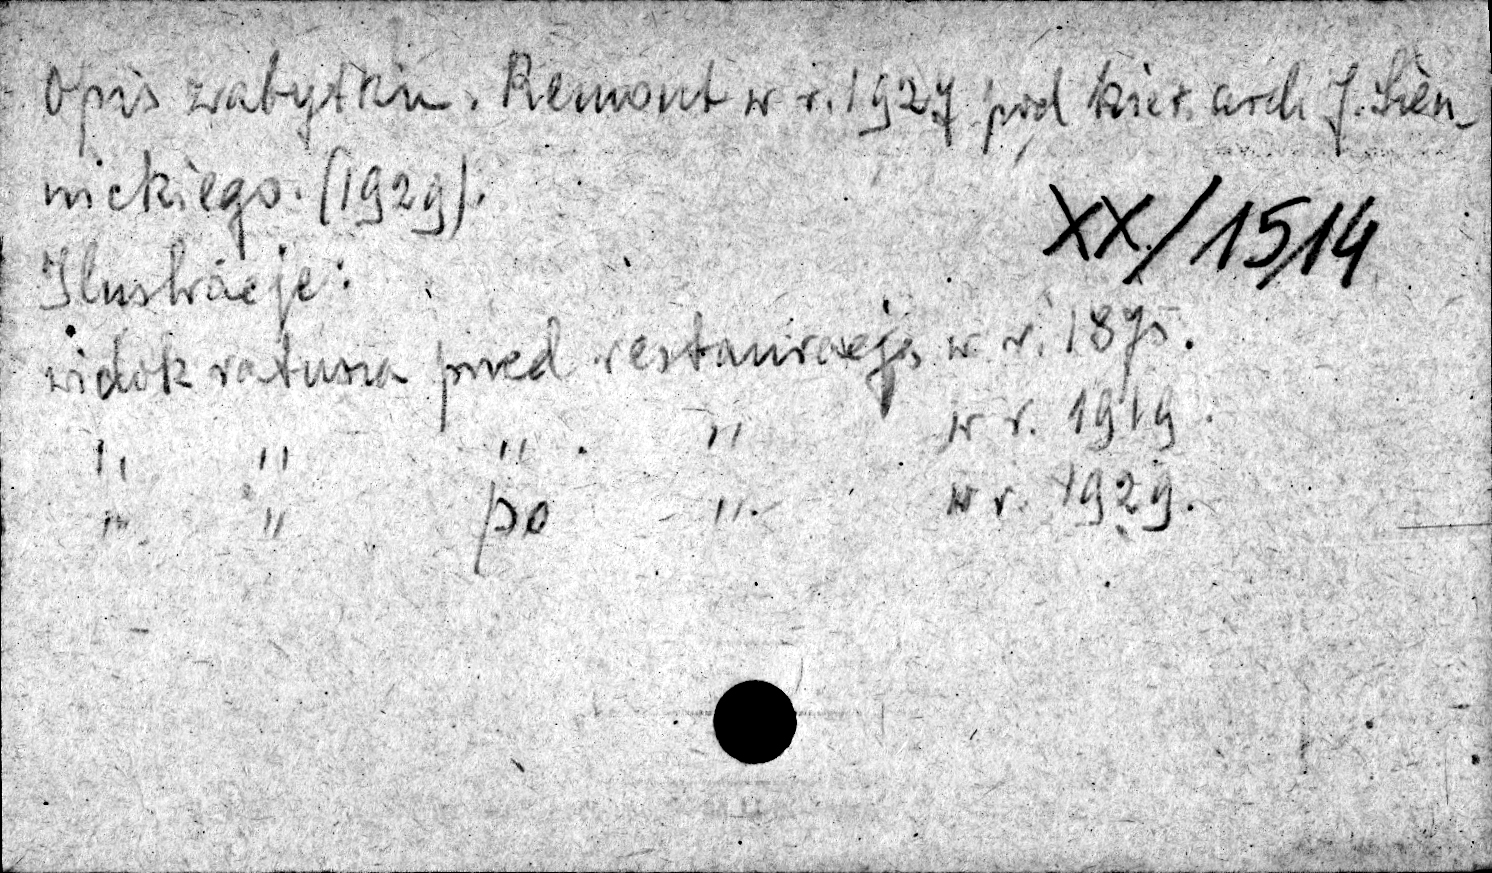 Opis zabytku. Remont w r. 1927 pod kier. arch J. Sien-
nickiego. (1929).
XX/1514
Ilustracje:
widok ratusza przed restauracją w r. 1875.
" " " " w r. 1919.
" " po " w r. 1929.